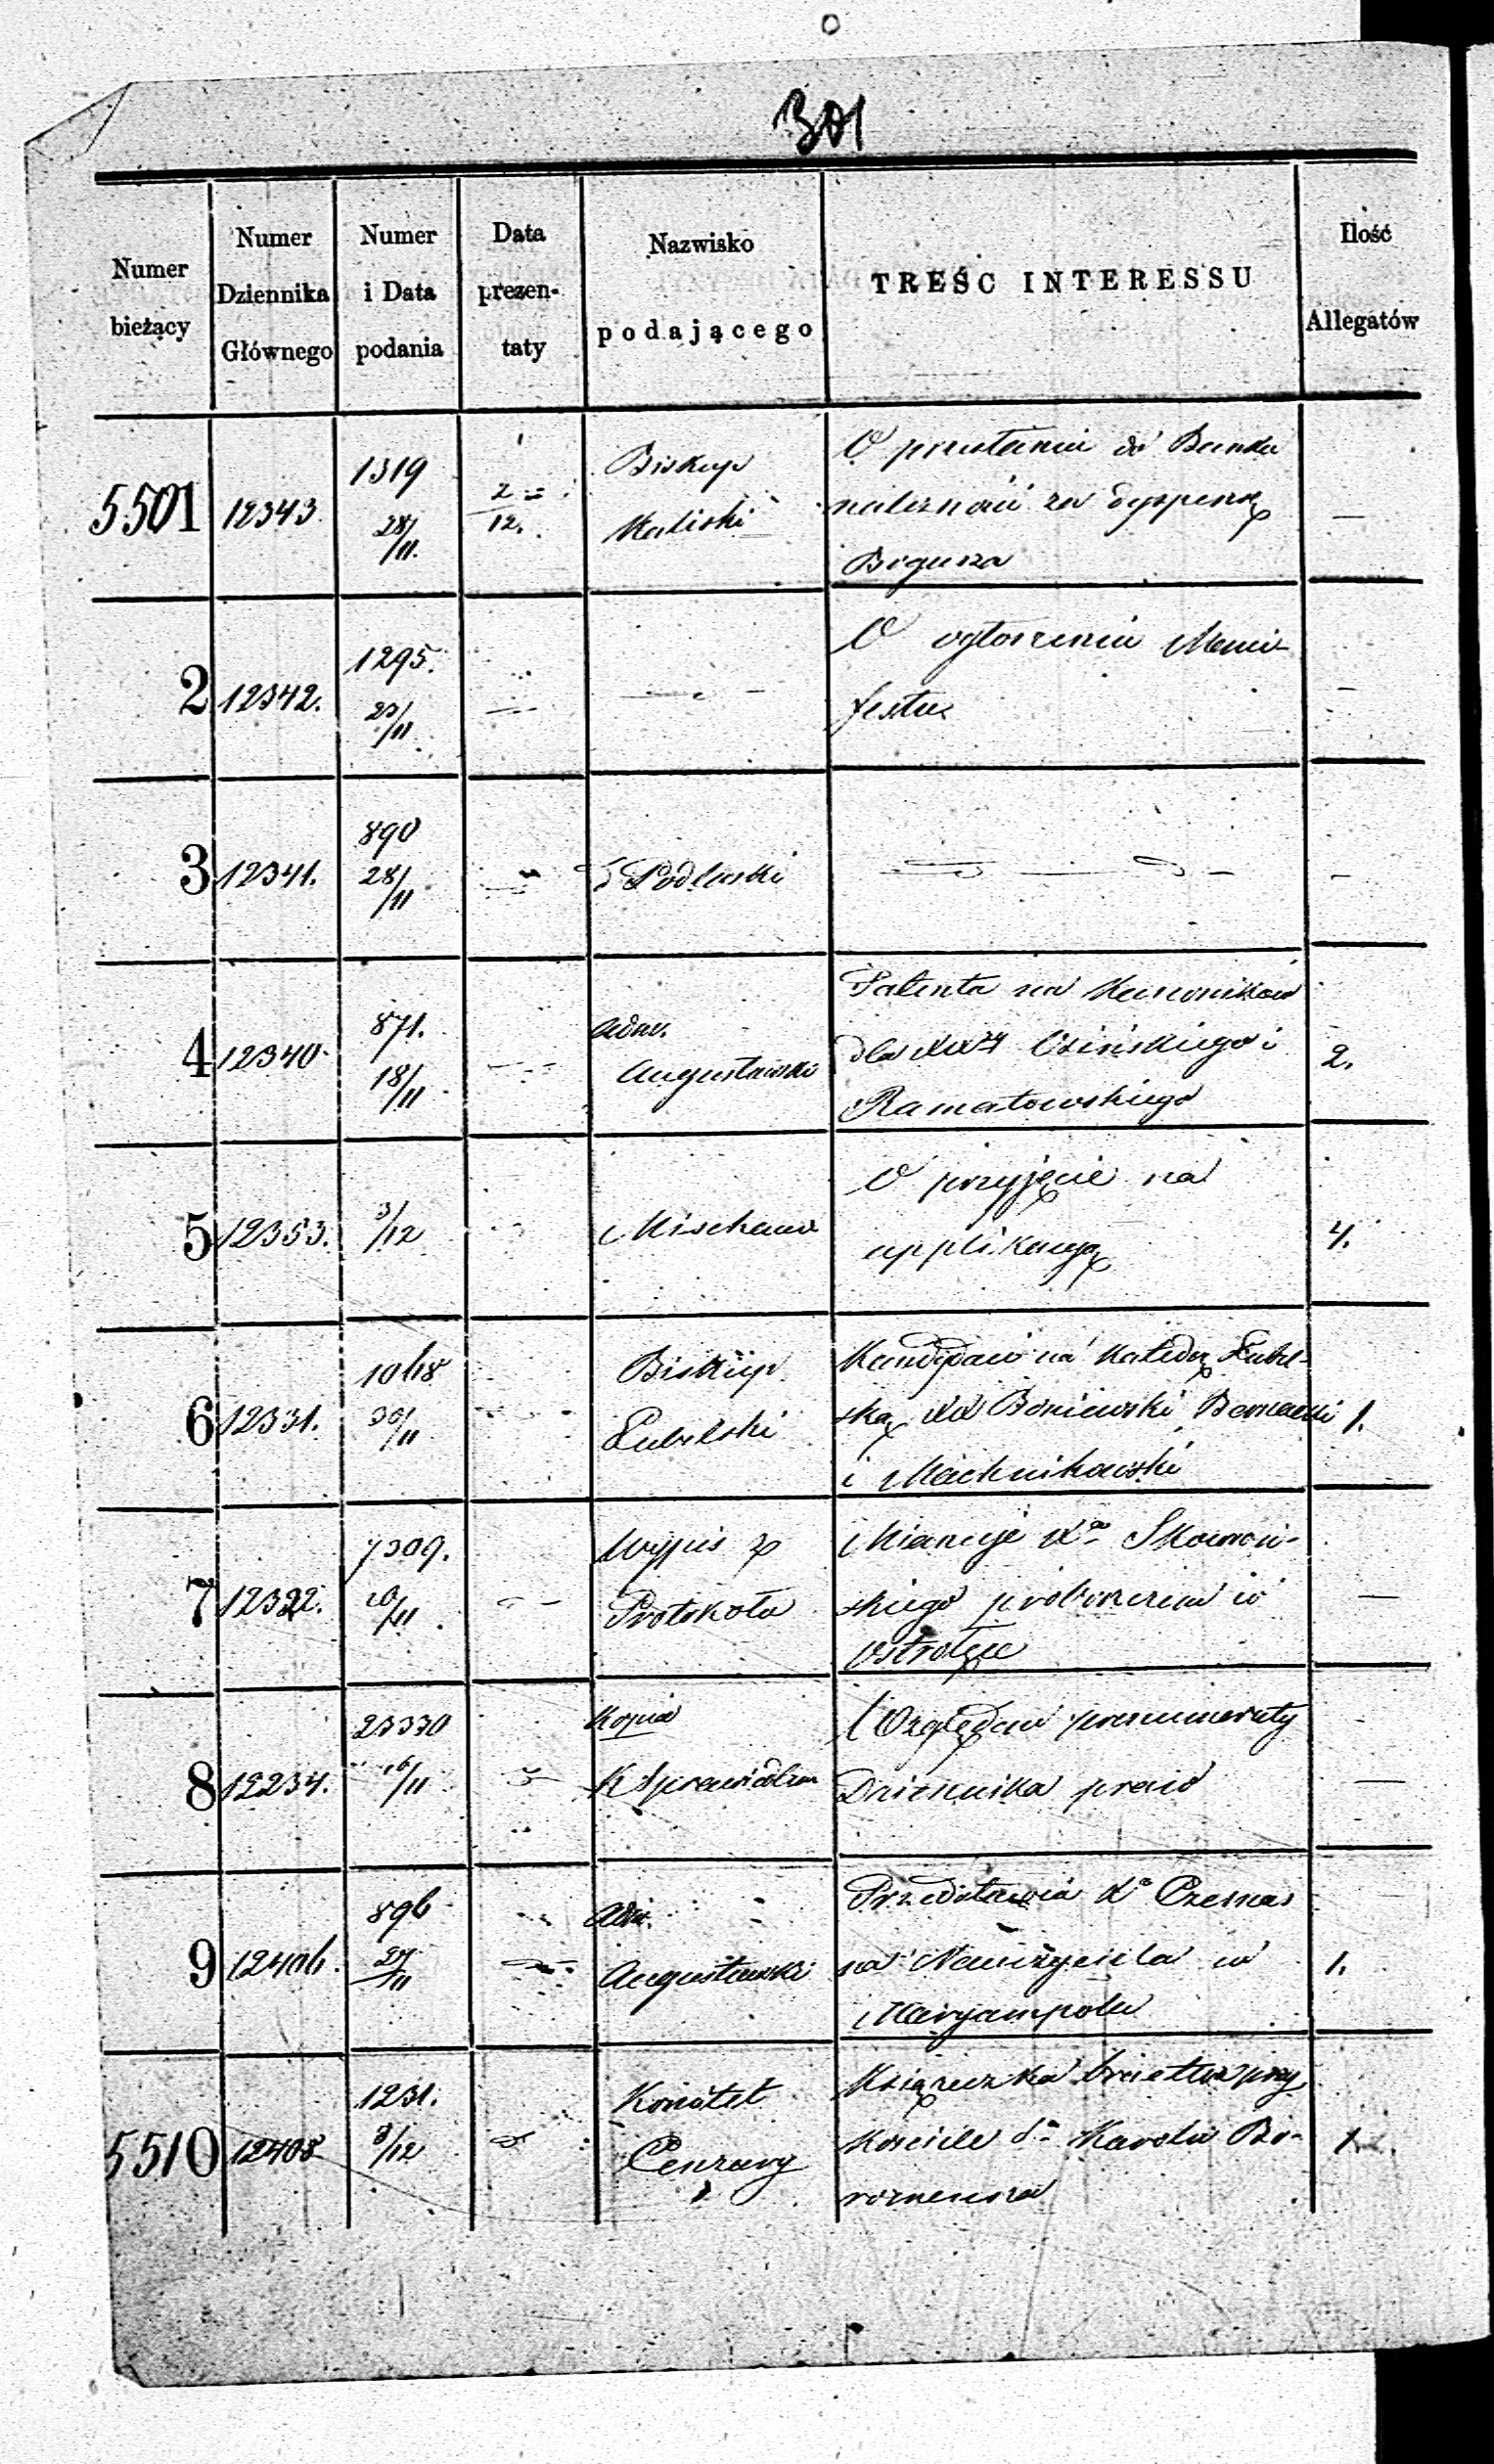 301
Numer bieżący
Numer Dziennika Głównego
Numer i Data podania
Data prezen-taty
Nazwisko podającego
TREŚC INTERESSU
Ilość Allegatów
5501 12343 1319 28/11. 2/12. Biskup Kaliski
O przesłaniu do Banku
należności za dyspensę
Bogusza
—
2 12342. 1295. 23/11 — — —
O ogłoszeniu Mani-
festu
—
3 12341. 890 28/11 — " Podlaski — — —
4 12340. 871. 18/11 — Adm. Augustowski
Patenta na Kanoników
dla XX
i
Ramatowskiego
2.
5 12353. 3/12
O przyjęcie na
applikacyę
4.
6 12331. 1068 30/11 Biskup Lubelski
na Katedrę Lubel-
ską XX Boniewski
i Machnikowski
1.
7 12322. 7309. 20/11 — Wypis z Protokołu
Mianuje Xa Skowroń-
skiego proboszczem w
Ostrołęce
—
8 12234. 23330 16/11 Kopia K Sprawiedliw
Względem prenumeraty
Dziennika praw
—
9 12406. 896 27/11 Adm. Augustowski
Przedstawia Xa Czesnas
na Nauczyciela w
Maryampolu
1.
5510 12408 1231. 3/12 Komitet Cenzury
Książeczka bractwa przy
Kościele Sgo Karola Bo-
romeusza
1.